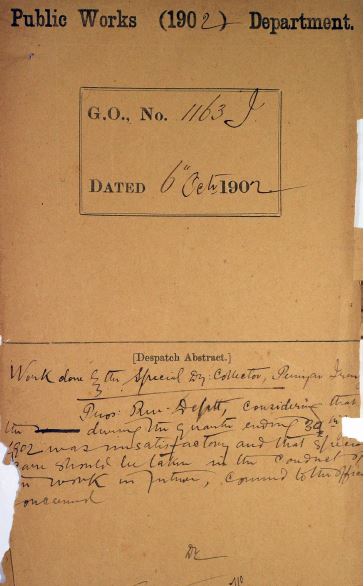 Public Works (1902) Department.
G.O., No. 1163 I.
DATED 6th Octr 1902
[Despatch Abstract.]
Work done by the Special Dy: Collector,
considering that
the during the quarter ending 30th
1902 was unsatisfactory and that
care should be taken in the conduct of
work in future,
concerned